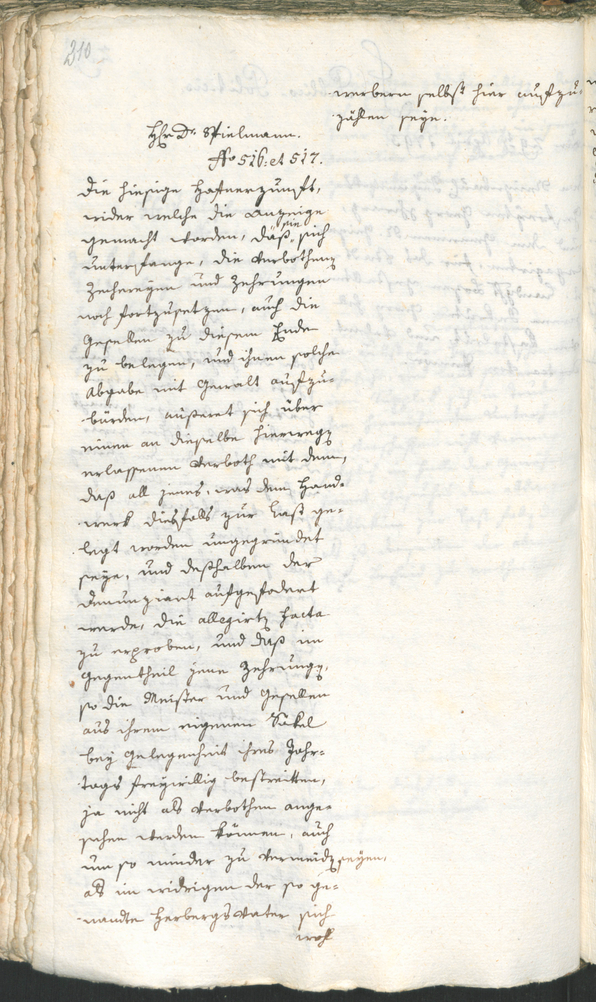 210
werbern selbst hier aufzu-
zählen seye.
Hhr Dr. Spielmann.
Fro 516. et 517.
Die hiesige Hafnerzunft,
wider welche die Anzeige
gemacht worden, daß sie sich
unterfange, die verbothene
Zechereyen und Zehrungen
noch fortzusetzen, auch die
Gesellen zu diesem Ende
zu belegen, und ihnen solche
Abgabe mit Gewalt aufzu-
bürden, äußeret sich über
einen an dieselbe hierwegen
erlassenen Verboth mit dem,
daß all jenes, was dem Hand-
werk diesfalls zur Last ge-
legt worden ungegründet
seye, und deßhalben der
Denunziant aufgefodert
werde, die allegirte Facta
zu erproben, und daß im
Gegentheil jene Zehrungen,
so die Meister und Gesellen
aus ihrem eigenen Säkel
bey Gelegenheit ihres Jahr-
tags freywillig bestreitten,
ja nicht als verbothen ange-
sehen werden können, auch
um so minder zu vermeiden seyen,
als im widrigen der so ge-
nandte Herbergsvater sich
wohl